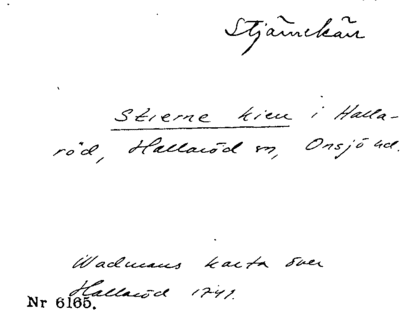 Stjärnekärr
Stierne kier i Halla-
röd, Hallaröd sn, Onsjö hd.
Wadmans karta över
Hallaröd 1741.
Nr 6165.